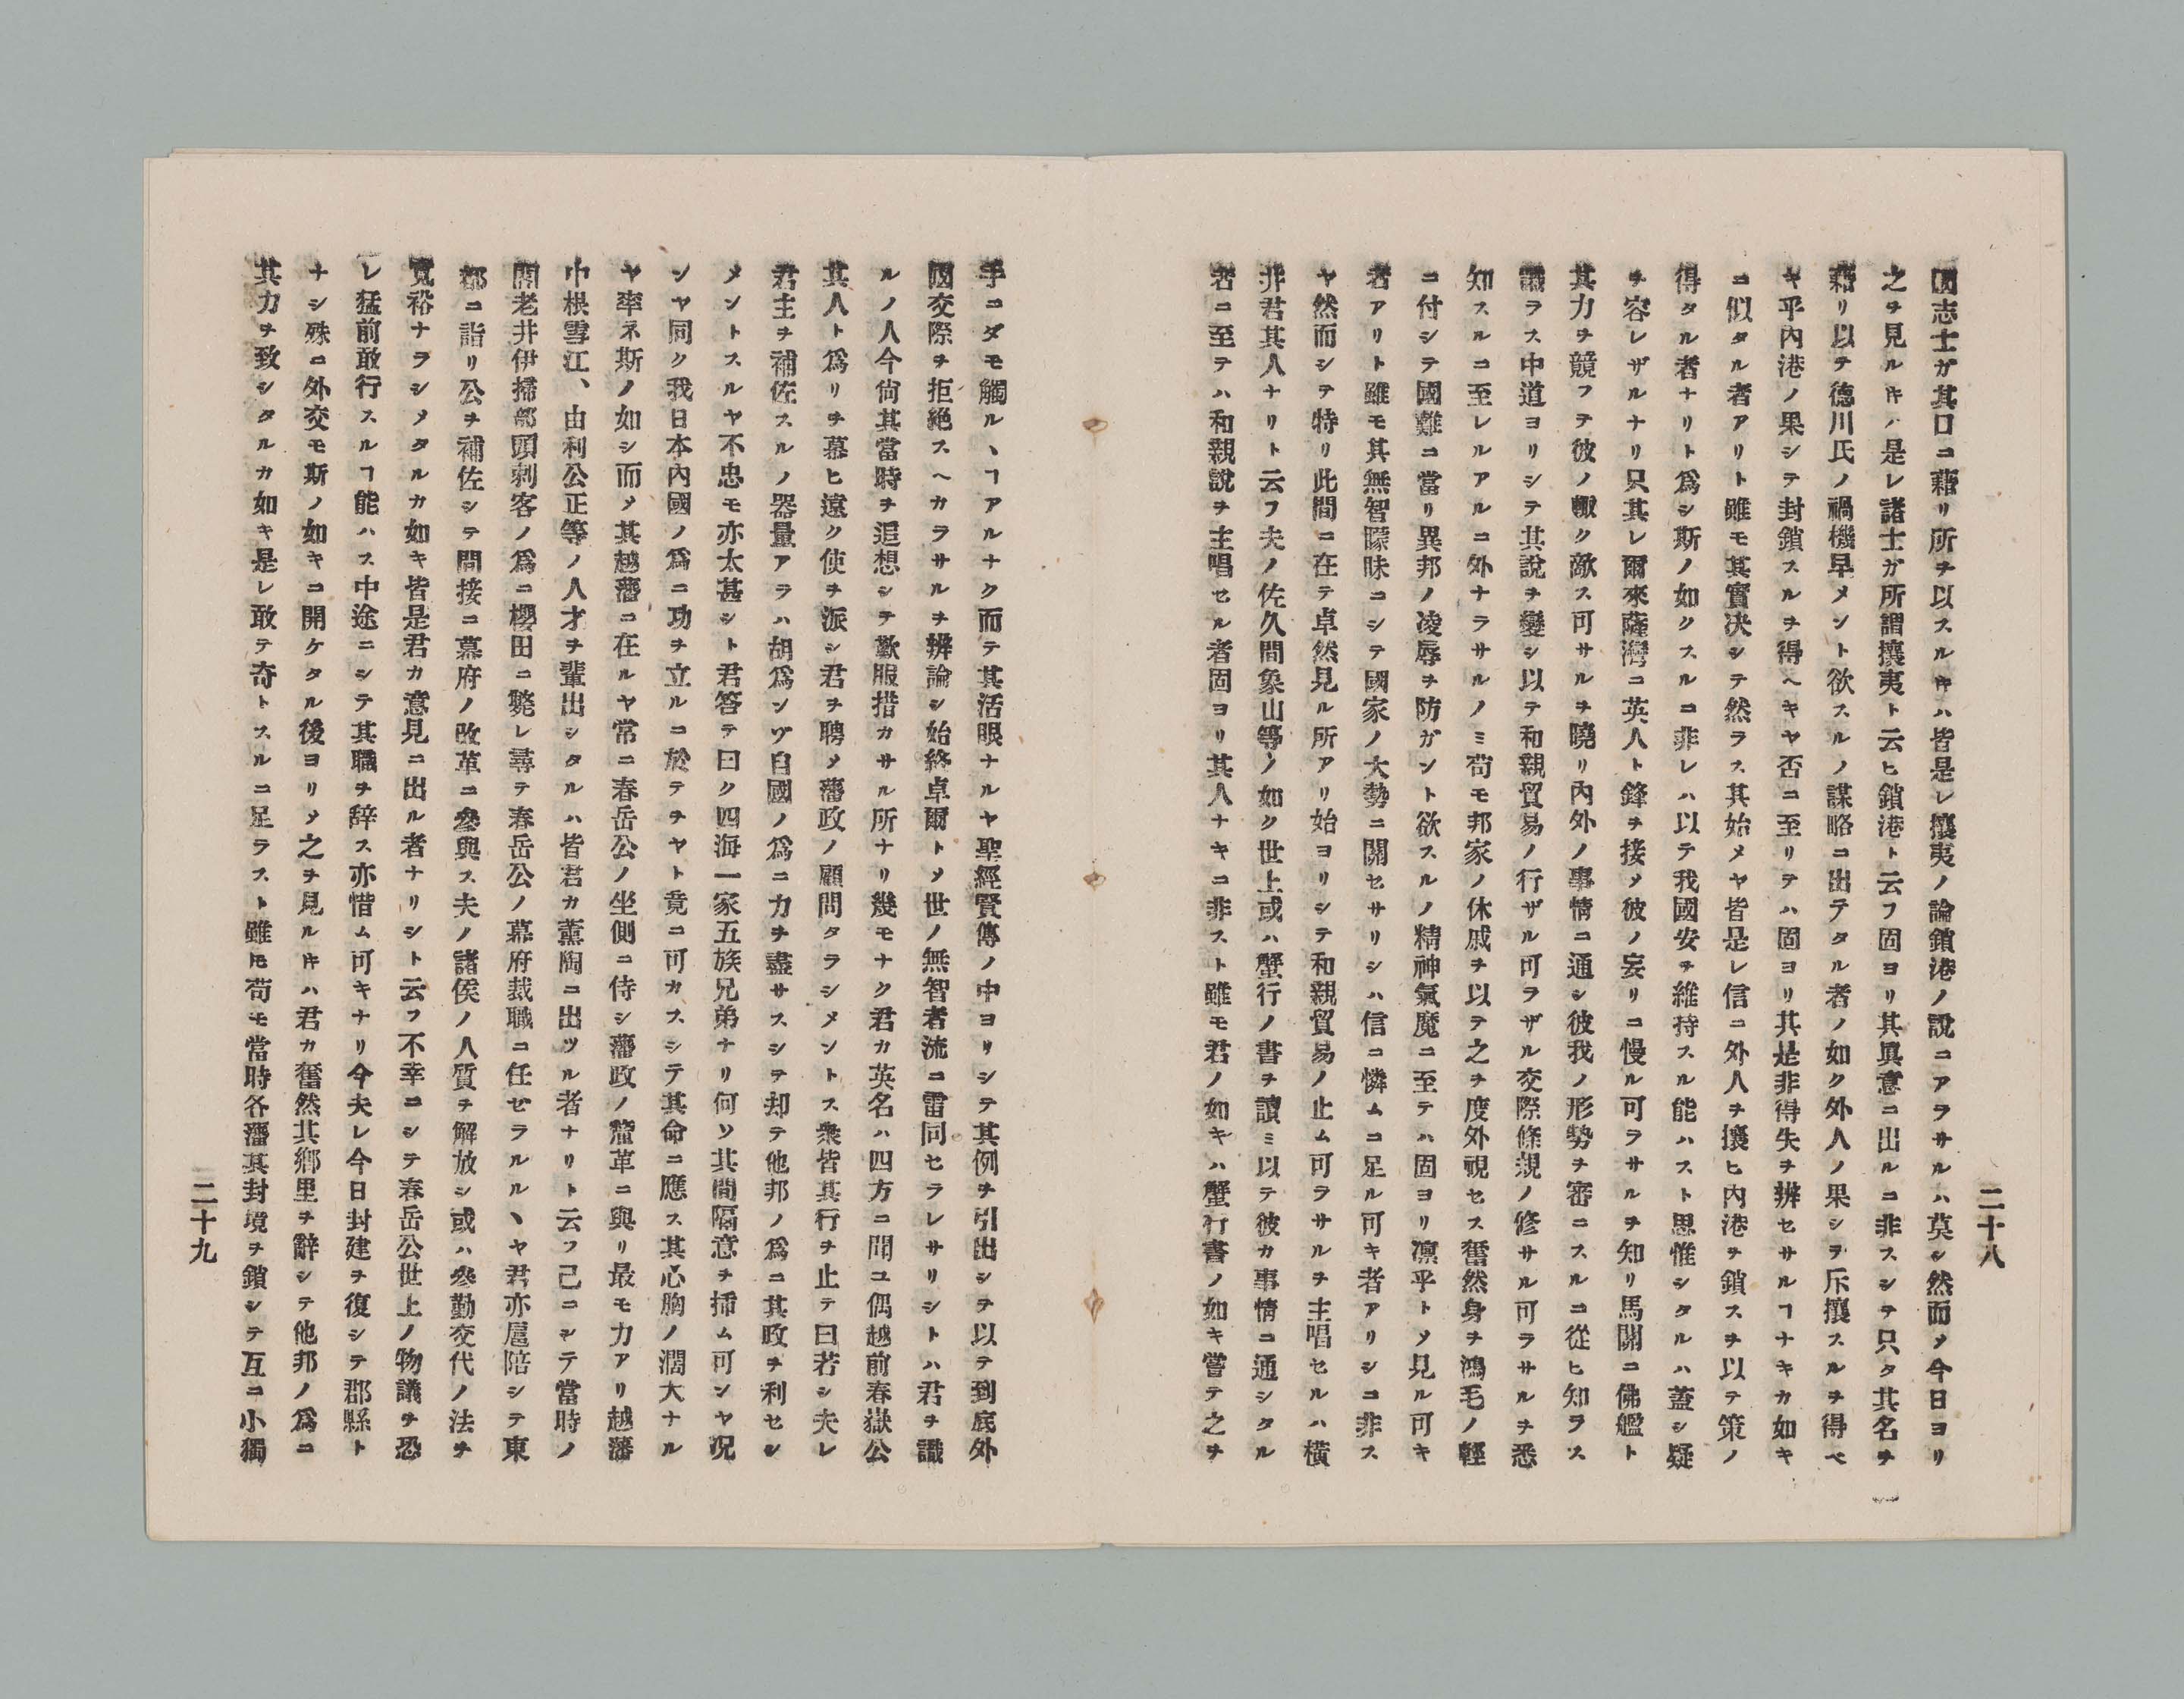 二十八
國志士ガ其口ニ藉リ所ヲ以スルキハ皆是レ攘夷ノ論鎖港ノ說ニアラサルハ莫シ然而メ今日ヨリ
之ヲ見ルキハ是レ諸士ガ所謂攘夷ト云ヒ鎖港ト云フ固ヨリ其眞意ニ出ルニ非スシテ只タ其名ヲ
藉リ以テ德川氏ノ禍機早メント欲スルノ謀略ニ出テタル者ノ如ク外人ノ果シテ斥攘スルヲ得ベ
キ乎內港ノ果シテ封鎖スルヲ得ヘキヤ否ニ至リテハ固ヨリ其是非得失ヲ辨セサルヿナキカ如キ
ニ似タル者アリト雖モ其實決シテ然ラス其始メヤ皆是レ信ニ外人ヲ攘ヒ內港ヲ鎖スヲ以テ策ノ
得タル者ナリト爲シ斯ノ如クスルニ非レハ以テ我國安ヲ維持スル能ハスト思惟シタルハ蓋シ疑
ヲ容レザルナリ只其レ爾來薩灣ニ英人ト鋒ヲ接メ彼ノ妄リニ慢ル可ラサルヲ知リ馬關ニ佛艦ト
其力ヲ競フテ彼ノ輙ク敵ス可サルヲ曉リ內外ノ事情ニ通シ彼我ノ形勢ヲ審ニスルニ從ヒ知ラス
識ラス中道ヨリシテ其說ヲ變シ以テ和親貿易ノ行ザル可ラザル交際條規ノ修サル可ラサルヲ悉
知スルニ至レルアルニ外ナラサルノミ苟モ邦家ノ休戚ヲ以テ之ヲ度外視セス奮然身ヲ鴻毛ノ輕
ニ付シテ國難ニ當リ異邦ノ凌辱ヲ防ガント欲スルノ精神氣魔ニ至テハ固ヨリ凛乎トメ見ル可キ
者アリト雖モ其無智矇昧ニシテ國家ノ大勢ニ關セサリシハ信ニ憐ムニ足ル可キ者アリシニ非ス
ヤ然而シテ特リ此間ニ在テ卓然見ル所アリ始ヨリシテ和親貿易ノ止ム可ラサルヲ主唱セルハ橫
非君其人ナリト云フ夫ノ佐久間象山等ノ如ク世上或ハ蟹行ノ書ヲ讀ミ以テ彼カ事情ニ通シタル
者ニ至テハ和親說ヲ主唱セル者固ヨリ其人ナキニ非スト雖モ君ノ如キハ蟹行書ノ如キ嘗テ之ヲ
手ニダモ觸ル丶ヿアルナク而テ其活眼ナルヤ聖經賢傳ノ中ヨリシテ其例ヲ引出シテ以テ到底外
國交際ヲ拒絕スヘカラサルヲ辨論シ始終卓爾トメ世ノ無智者流ニ雷同セラレサリシトハ君ヲ識
ルノ人今尙其當時ヲ追想シテ歎服措カサル所ナリ幾モナク君カ英名ハ四方ニ聞ユ偶越前春嶽公
其人ト爲リヲ慕ヒ遠ク使ヲ派シ君ヲ聘メ藩政ノ顧問タラシメントス衆皆其行ヲ止テ曰若シ夫レ
君主ヲ補佐スルノ器量アラハ胡爲ンゾ自國ノ爲ニ力ヲ盡サスシテ却テ他邦ノ爲ニ其政ヲ利セシ
メントスルヤ不忠モ亦太甚シト君答テ曰ク四海一家五族兄弟ナリ何ソ其間隔意ヲ揷ム可ンヤ況
ンヤ同ク我日本內國ノ爲ニ功ヲ立ルニ於テヲヤト竟ニ可カスシテ其命ニ應ス其心胸ノ濶大ナル
ヤ率ネ斯ノ如シ而メ其越藩ニ在ルヤ常ニ春岳公ノ坐側ニ侍シ藩政ノ釐革ニ與リ最モ力アリ越藩
中根雪江、由利公正等ノ人才ヲ輩出シタルハ皆君カ薰陶ニ出ツル者ナリト云フ已ニシテ當時ノ
閣老井伊掃部頭刺客ノ爲ニ櫻田ニ斃レ尋テ春岳公ノ幕府裁職ニ任ゼラルヽヤ君亦扈陪シテ東
都ニ詣リ公ヲ補佐シテ間接ニ幕府ノ改革ニ參與ス夫ノ諸侯ノ人質ヲ解放シ或ハ參勤交代ノ法ヲ
寬裕ナラシメタルカ如キ皆是君カ意見ニ出ル者ナリシト云フ不幸ニシテ春岳公世上ノ物議ヲ恐
レ猛前敢行スルヿ能ハス中途ニシテ其職ヲ辭ス亦惜ム可キナリ今夫レ今日封建ヲ復シテ郡縣ト
ナシ殊ニ外交モ斯ノ如キニ開ケタル後ヨリメ之ヲ見ルキハ君カ奮然其鄕里ヲ辭シテ他邦ノ爲ニ
其力ヲ致シタルカ如キ是レ敢テ奇トスルニ足ラスト雖モ苟モ當時各藩其封境ヲ鎖シテ互ニ小獨
二十九